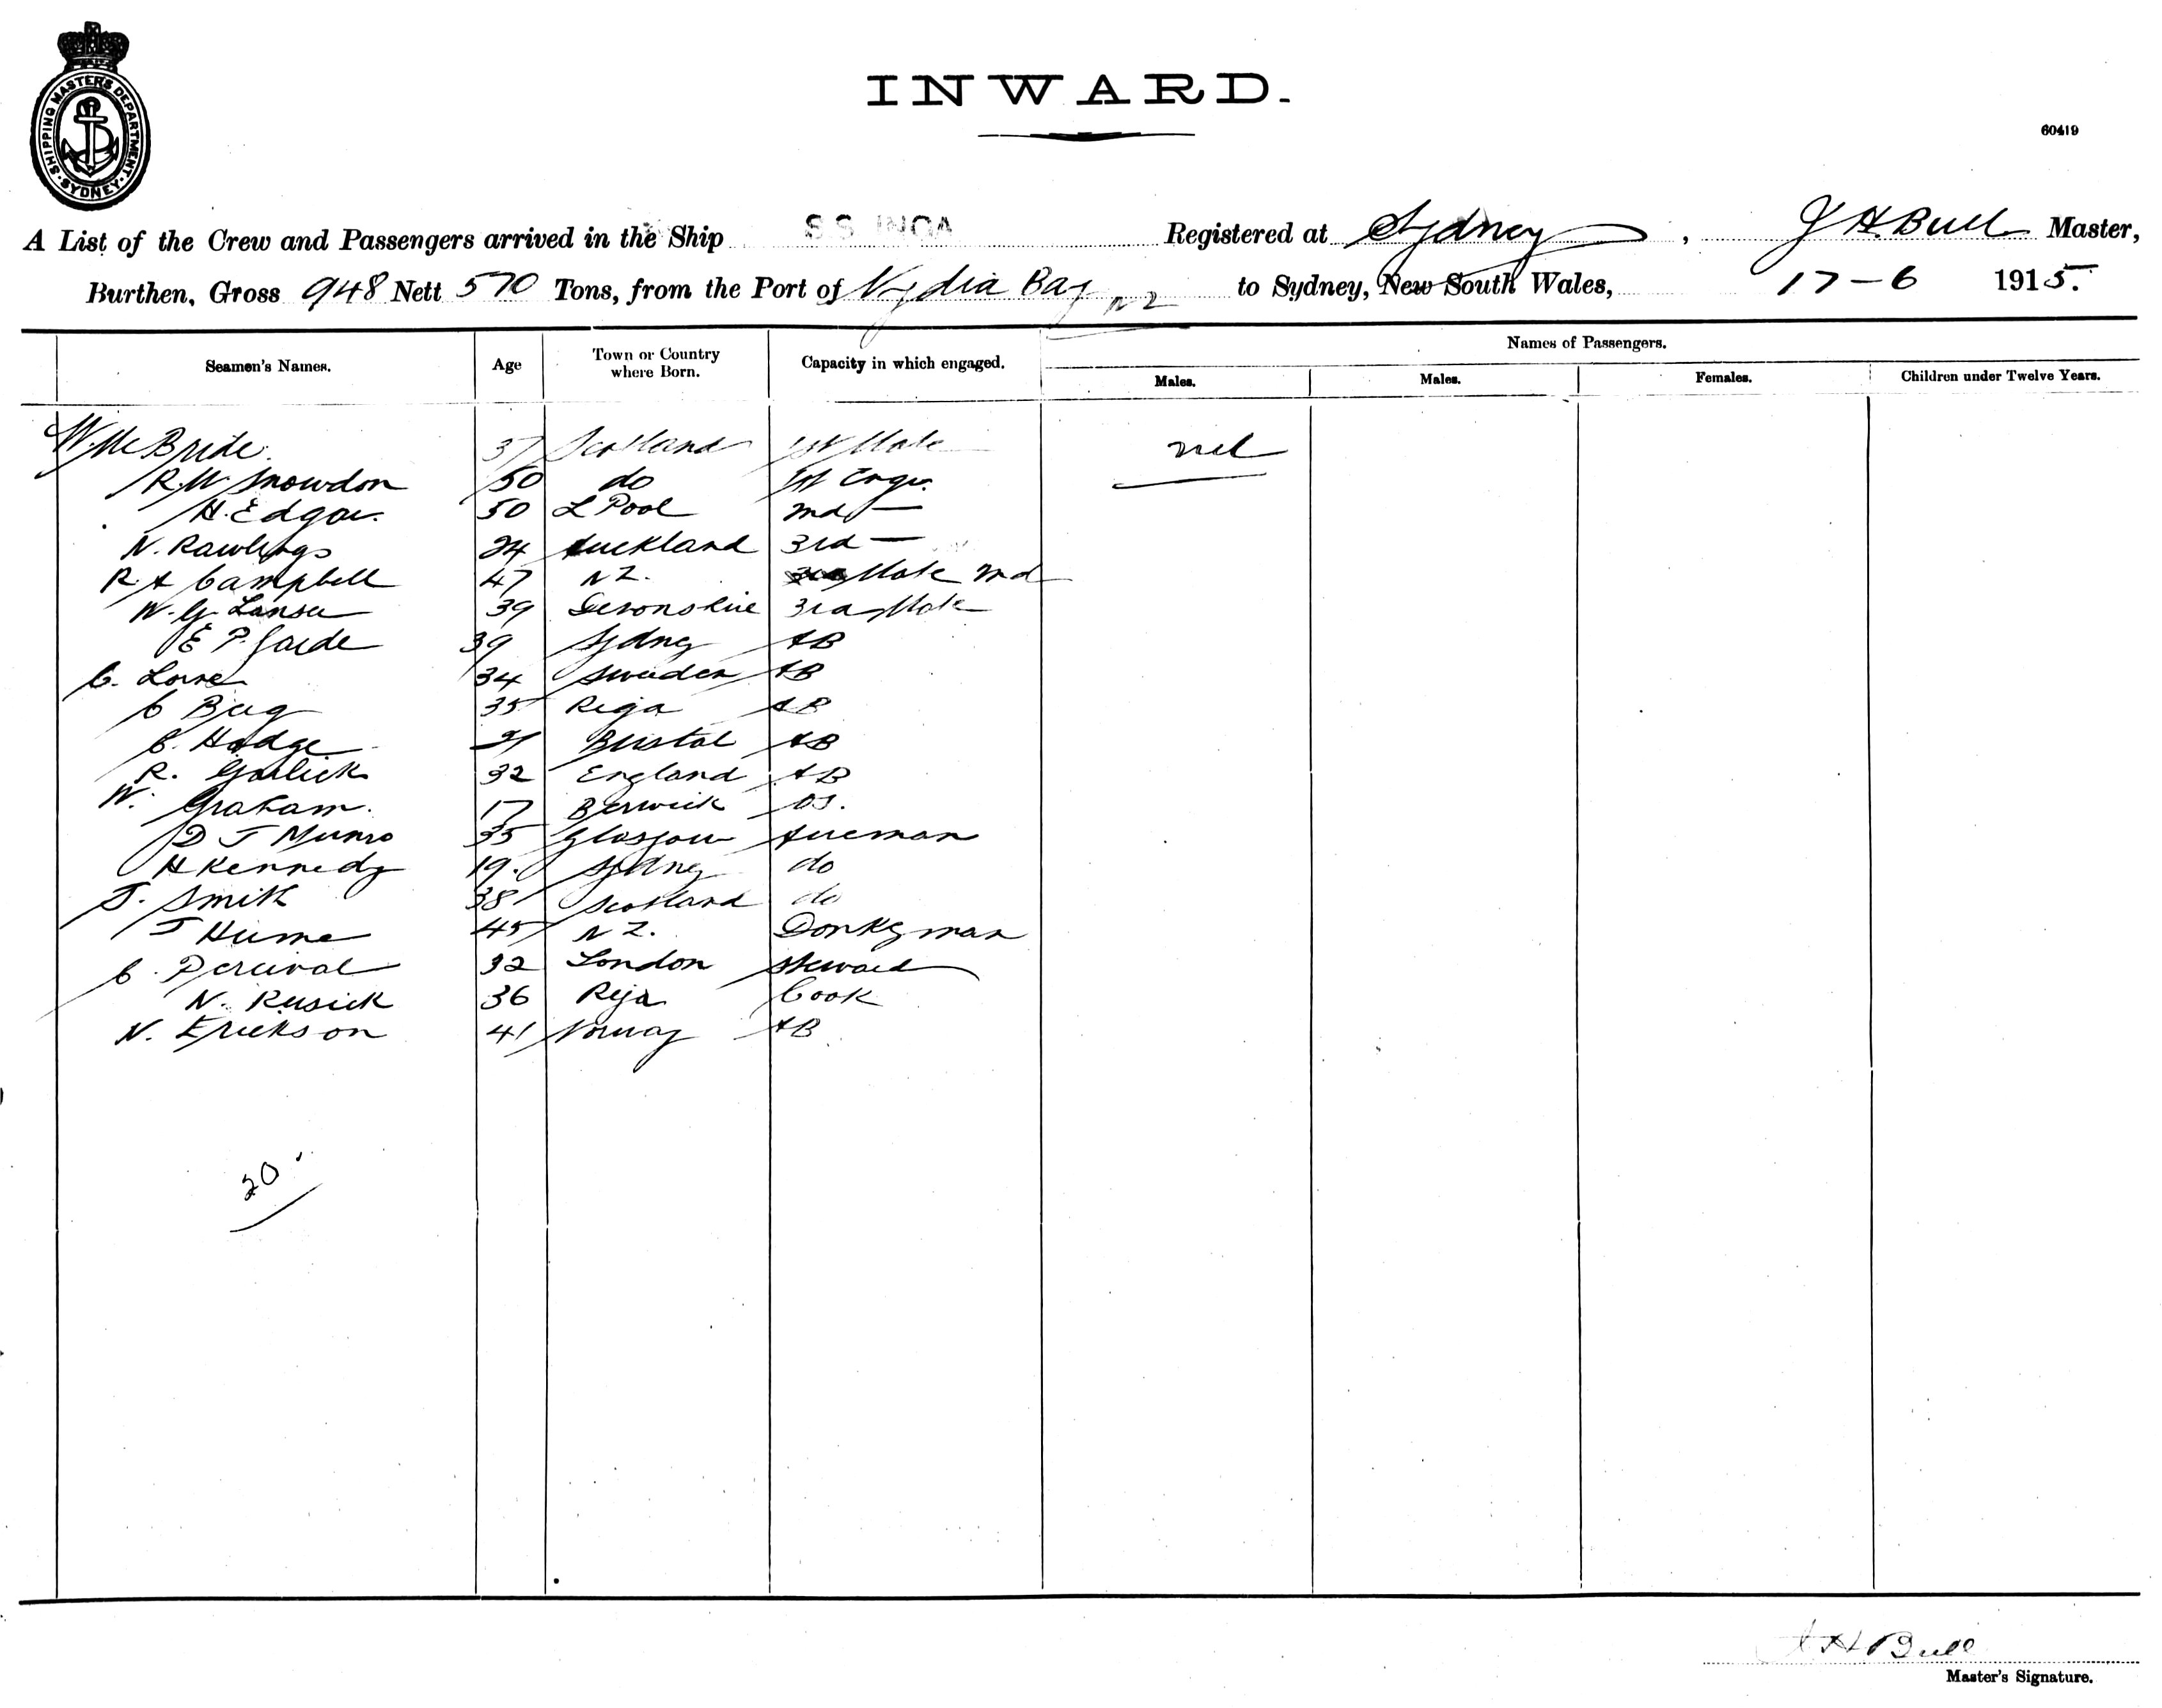 SHIPPING MASTERS DEPARTMENT
SYDNEY
INWARD.
60419
A List of the Crew and Passengers arrived in the Ship SS INGA Registered at Sydney, J H. Bull Master,
Burthen, Gross 948 Nett 570 Tons, from the Port of Nydia Bay NZ to Sydney, New South Wales, 17-6 1915.
Seamen's Names. Age Town or Country where Born. Capacity in which engaged. Names of Passengers.
Males. Males. Females. Children under Twelve Years.
W. McBride. 37 Scotland 1st Mate nil
R. W. Snowdon 50 do 1st Engr.
H. Edgar. 50 L Pool 2nd —
N. Rawlings 24 Auckland 3rd —
R A Campbell 47 N Z. Mate 2nd
W. G. 39 Devonshire 3rd Mate
E P. 39 Sydney AB
C. 34 Sweden AB
C 35 Riga AB
C. Hodge 21 Bristol AB
R. Garlick 32 England AB
W. Graham. 17 Berwick OS.
D J Munro 35 Glasgow Fireman
H Kennedy 19. Sydney do
J. Smith 38 Scotland do
J Hume 45 N Z. Donkyman
C. Percival 32 London Steward
N. Rusick 36 Riga Cook
N. Erickson 41 Norway AB
20
J H Bull
Master's Signature.